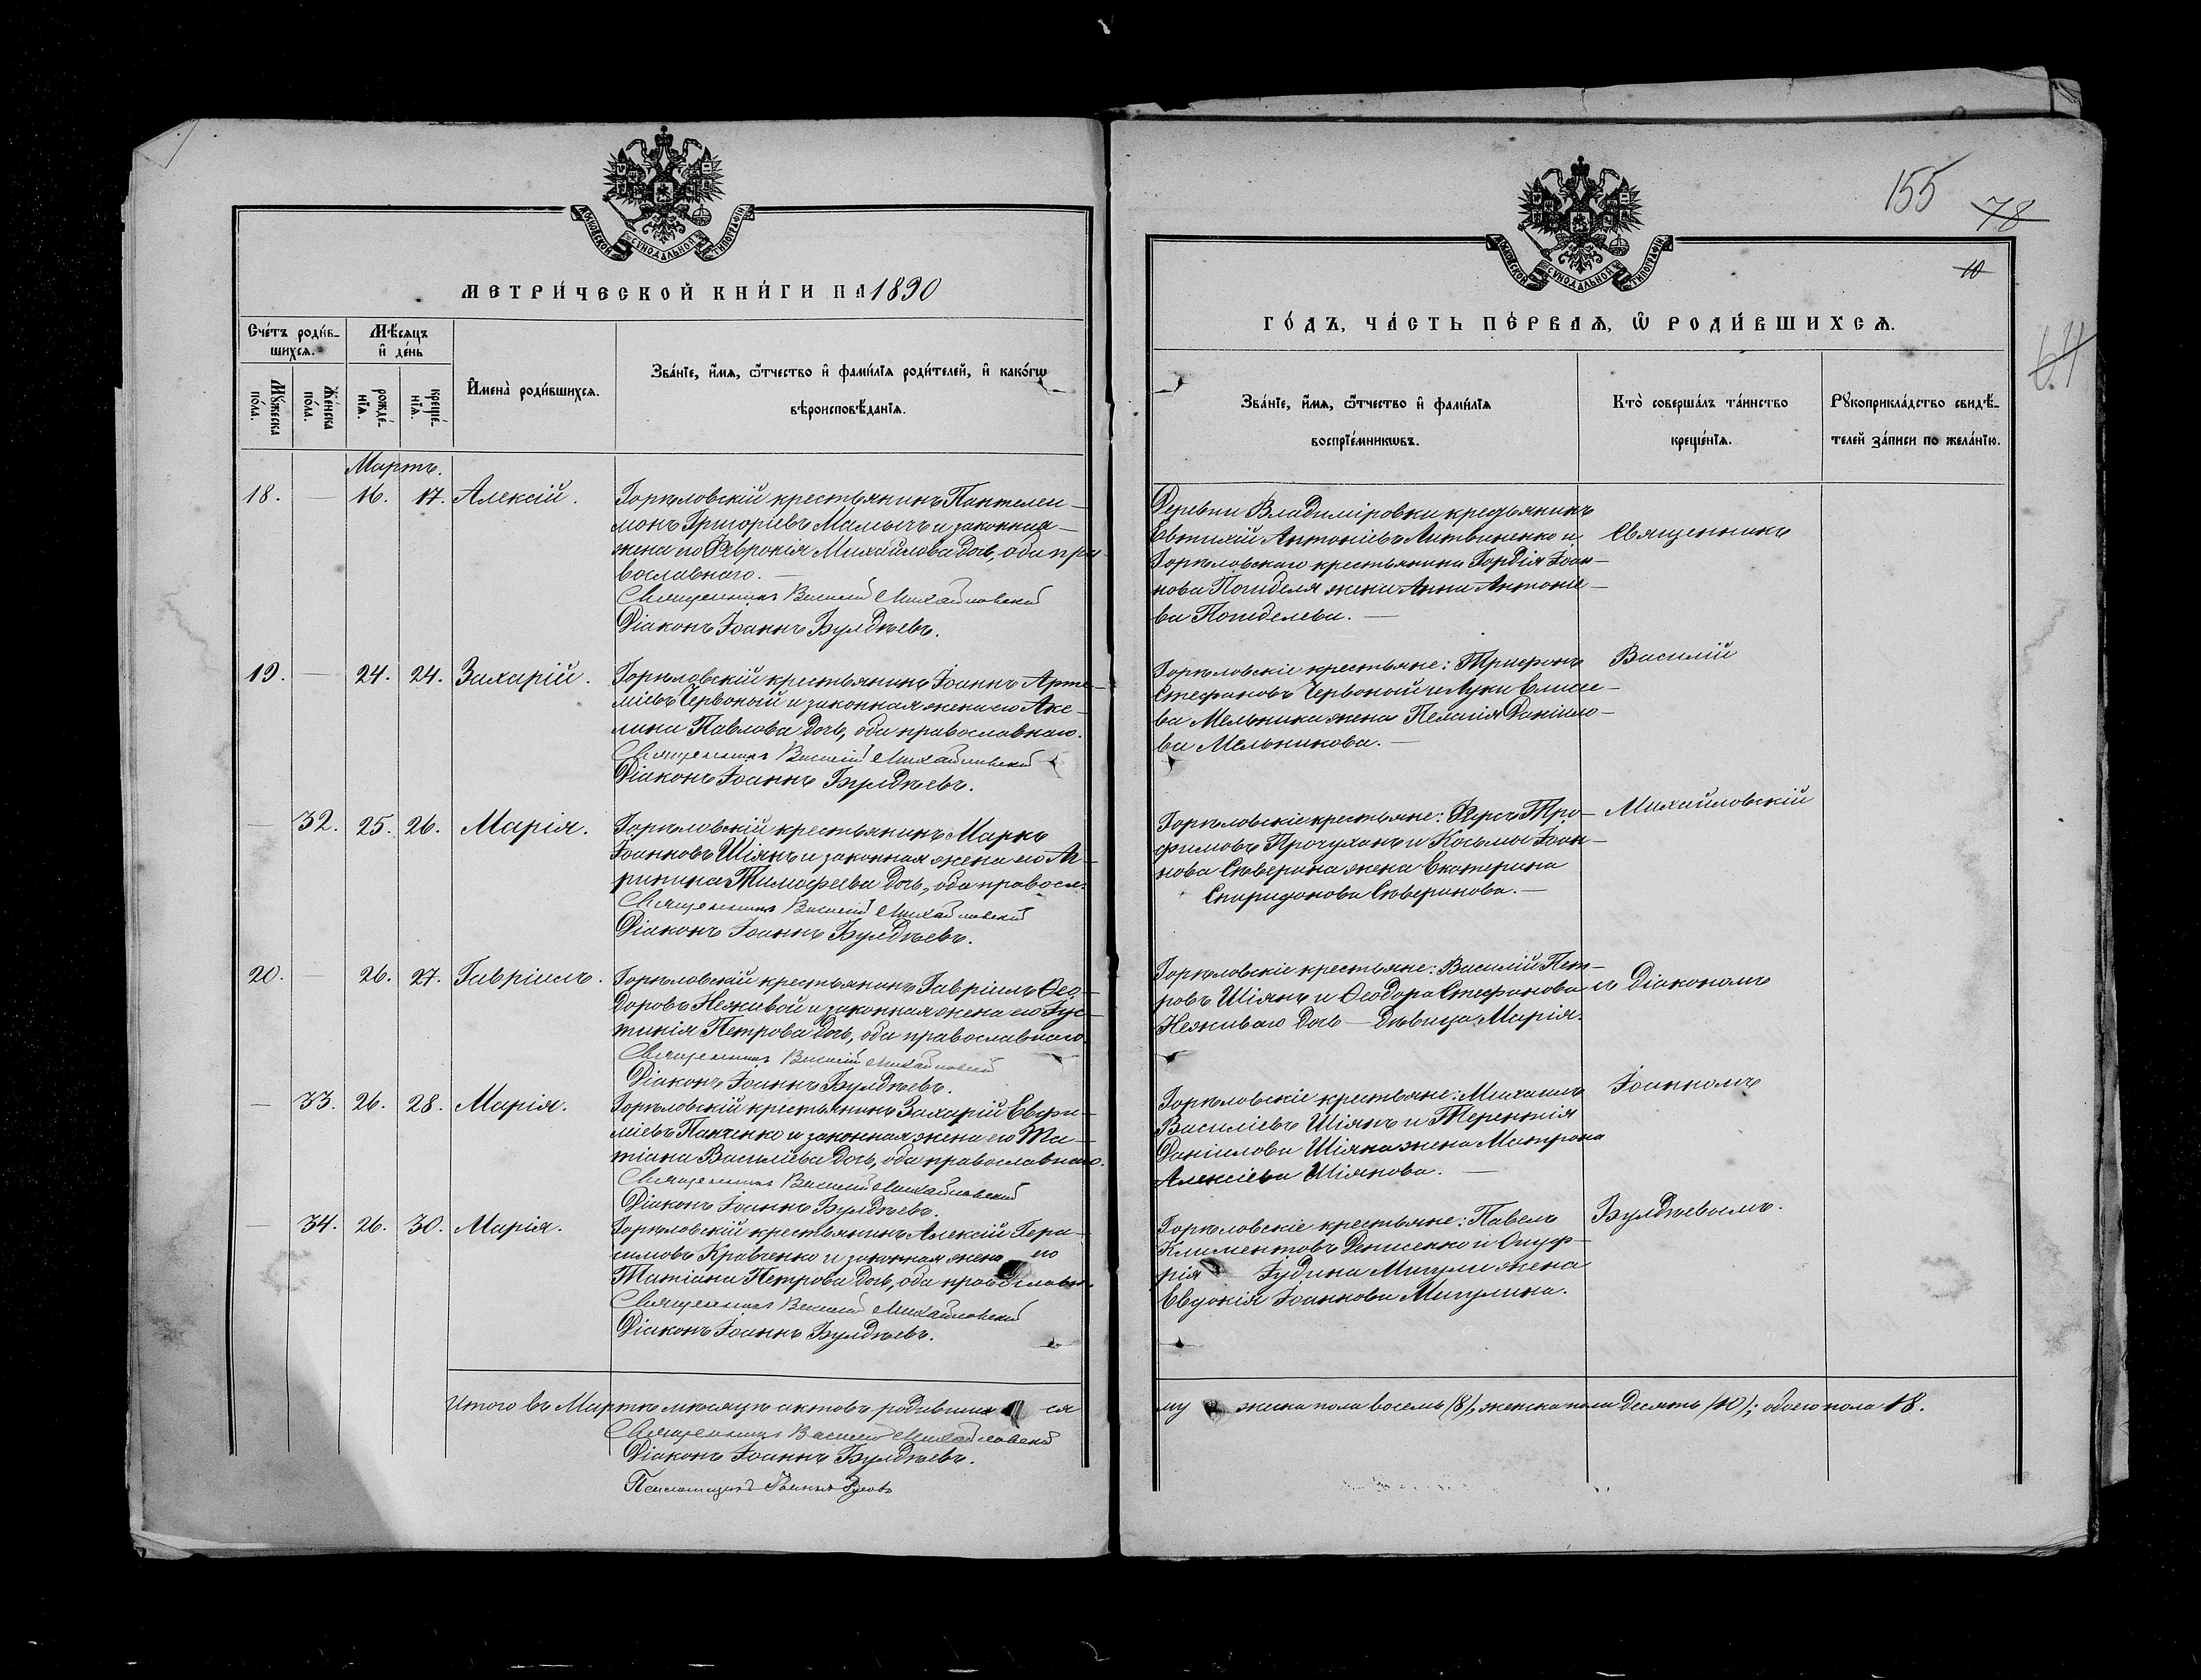 МОСКОВСКОЙ СУНОДАЛЬНОЙ ТИПОГРАФІИ
МЕТРИ́ЧЕСКОЙ КНИ́ГИ НА 1890
Сче́тъ роди́в-
шихсѧ.
Мѣ́сѧцъ
и҆ де́нь
Мꙋ́жеска
по́ла.
Же́нска
по́ла.
рожде́-
нїѧ.
креще́-
нїѧ.
И҆мена̀ роди́вшихсѧ.
Зва́нїе, и҆́мѧ, ѻ҆́тчество и҆ фами́лїѧ роди́телей, и҆ како́гѡ
вѣроисповѣ́данїѧ.
Мартъ.
18. — 16. 17. Алексій.
Горѣловскій крестьянинъ Пантелеи-
монъ Григоріевъ Мамычъ и законная
жена его Ѳеврокія Михайлова дочь, оба пра-
вославнаго. —
Священникъ Василій Михайловскій
Діаконъ Іоаннъ Булдѣевъ.
19. — 24. 24. Захарій.
Горѣловскій крестьянинъ Іоаннъ Арте-
міевъ Червоный и законная жена его Аке-
лина Павлова дочь, оба православнаго.
Священникъ Василій Михайловскій
Діаконъ Іоаннъ Булдѣевъ.
— 32. 25. 26. Марія.
Горѣловскій крестьянинъ Маркъ
Іоанновъ Шіянъ и законная жена его Аг-
рипина Тимофеева дочь, оба правосл.
Священникъ Василій Михайловскій
Діаконъ Іоаннъ Булдѣевъ.
20. — 26. 27. Гавріилъ.
Горѣловскій крестьянинъ Гавріилъ Ѳео-
доровъ Неживой и законная жена его Іус-
тинія Петрова дочь, оба православнаго
Священникъ Василій Михайловскій
Діаконъ Іоаннъ Булдѣевъ.
— 33. 26. 28. Марія.
Горѣловскій крестьянинъ Захарій Евфи-
міевъ Панченко и законная жена его Та-
тіана Василіева дочь, оба православнаго.
Священникъ Василій Михайловскій
Діаконъ Іоаннъ Булдѣевъ.
— 34. 26. 30. Марія.
Горѣловскій крестьянинъ Алексій Гера-
симовъ Кравченко и законная жена его
Татіана Петрова дочь, оба православн.
Священникъ Василій Михайловскій
Діаконъ Іоаннъ Булдѣевъ.
Итого въ Мартѣ мѣсяцѣ актовъ родивших ся
Священникъ Василій Михайловскій
Діаконъ Іоаннъ Булдѣевъ.
Псаломщикъ
155 78
10
64
МОСКОВСКОЙ СУНОДАЛЬНОЙ ТИПОГРАФІИ
ГО́ДЪ, ЧА́СТЬ ПЕ́РВАѦ, Ѡ҆ РОДИ́ВШИХСѦ.
Зва́нїе, и҆́мѧ, ѻ҆́тчество и҆ фами́лїѧ
воспрїе́мникѡвъ.
Кто̀ соверша́лъ та́инство
креще́нїѧ.
Рꙋкоприкла́дство свидѣ́-
телей за́писи по жела́нїю.
Деревни Владиміровки крестьянинъ
Евтихій Антоніевъ Литвиненко и
Горѣловскаго крестьянина Гордія Іоан-
нова Погиделя жена Анна Антоніе-
ва Погиделева. —
Священникъ
Горѣловскіе крестьяне: Трифонъ
Стефановъ Червоный и Луки Елисе-
ва Мельника жена Пелагія Даніило-
ва Мельникова. —
Василій
Горѣловскіе крестьяне: Ѳирсъ Тро-
фимовъ Прочуханъ и Косьмы Іоан-
нова Сѣверина жена Екатерина
Спиридонова Сѣверинова. —
Михайловскій
Горѣловскіе крестьяне: Василій Пет-
ровъ Шіянъ и Ѳеодора Стефанова
Неживаго дочь — дѣвица Марія.
съ Діакономъ
Горѣловскіе крестьяне: Михаилъ
Василіевъ Шіянъ и Терентія
Даніилова Шіяна жена Матрона
Алексіева Шіянова. —
Іоанномъ
Горѣловскіе крестьяне: Павелъ
Климентовъ Денисенко и Онуф-
рія Іудина Мигули жена
Евдокія Іоаннова Мигулина.
Булдѣевымъ.
му жеска пола восемь (8), женска пола десять (10); обоего пола 18.